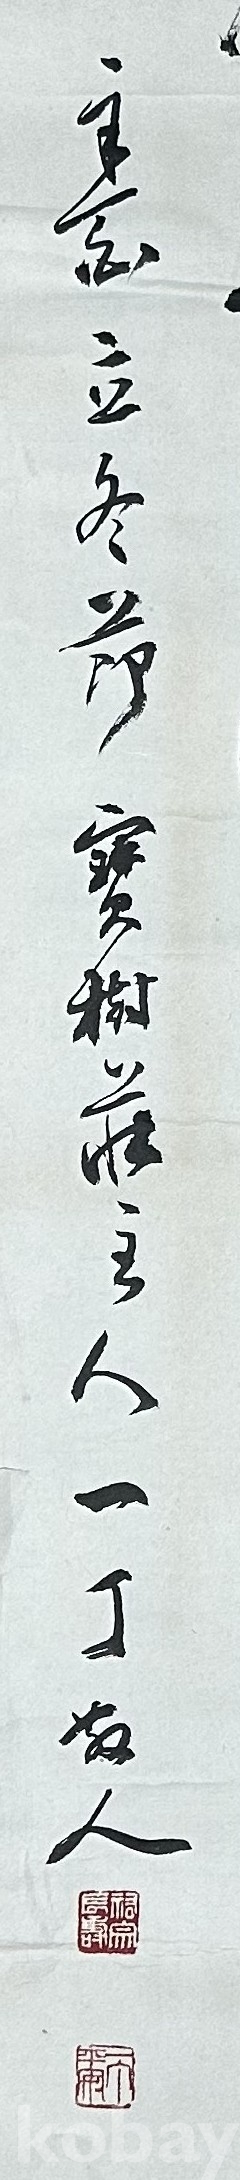 辛酉立冬節 寶樹莊主人一丁散人
kobay